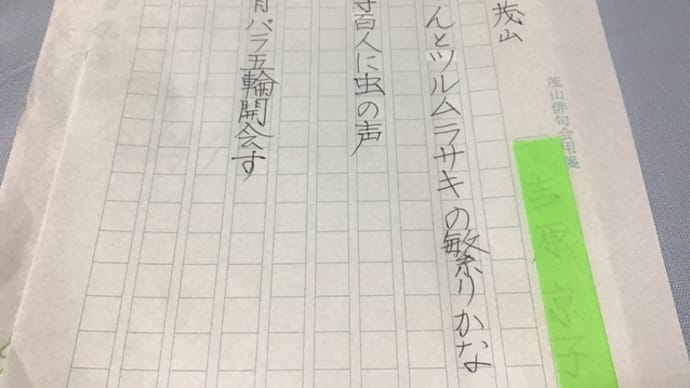 茂山俳句会用箋
吉原京子
茂山
んとツルムラサキの繁りかな
百人に虫の声
パラ五輪開会す